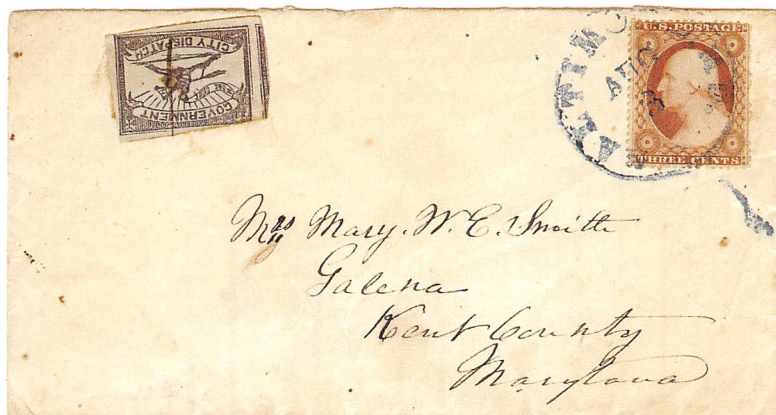 GOVERNMENT
CITY DISPATCH
BALTIMO
AUG
U.S. POSTAGE
THREE CENTS
Mrs Mary. W. E. Smith
Galena
Kent County
Maryland